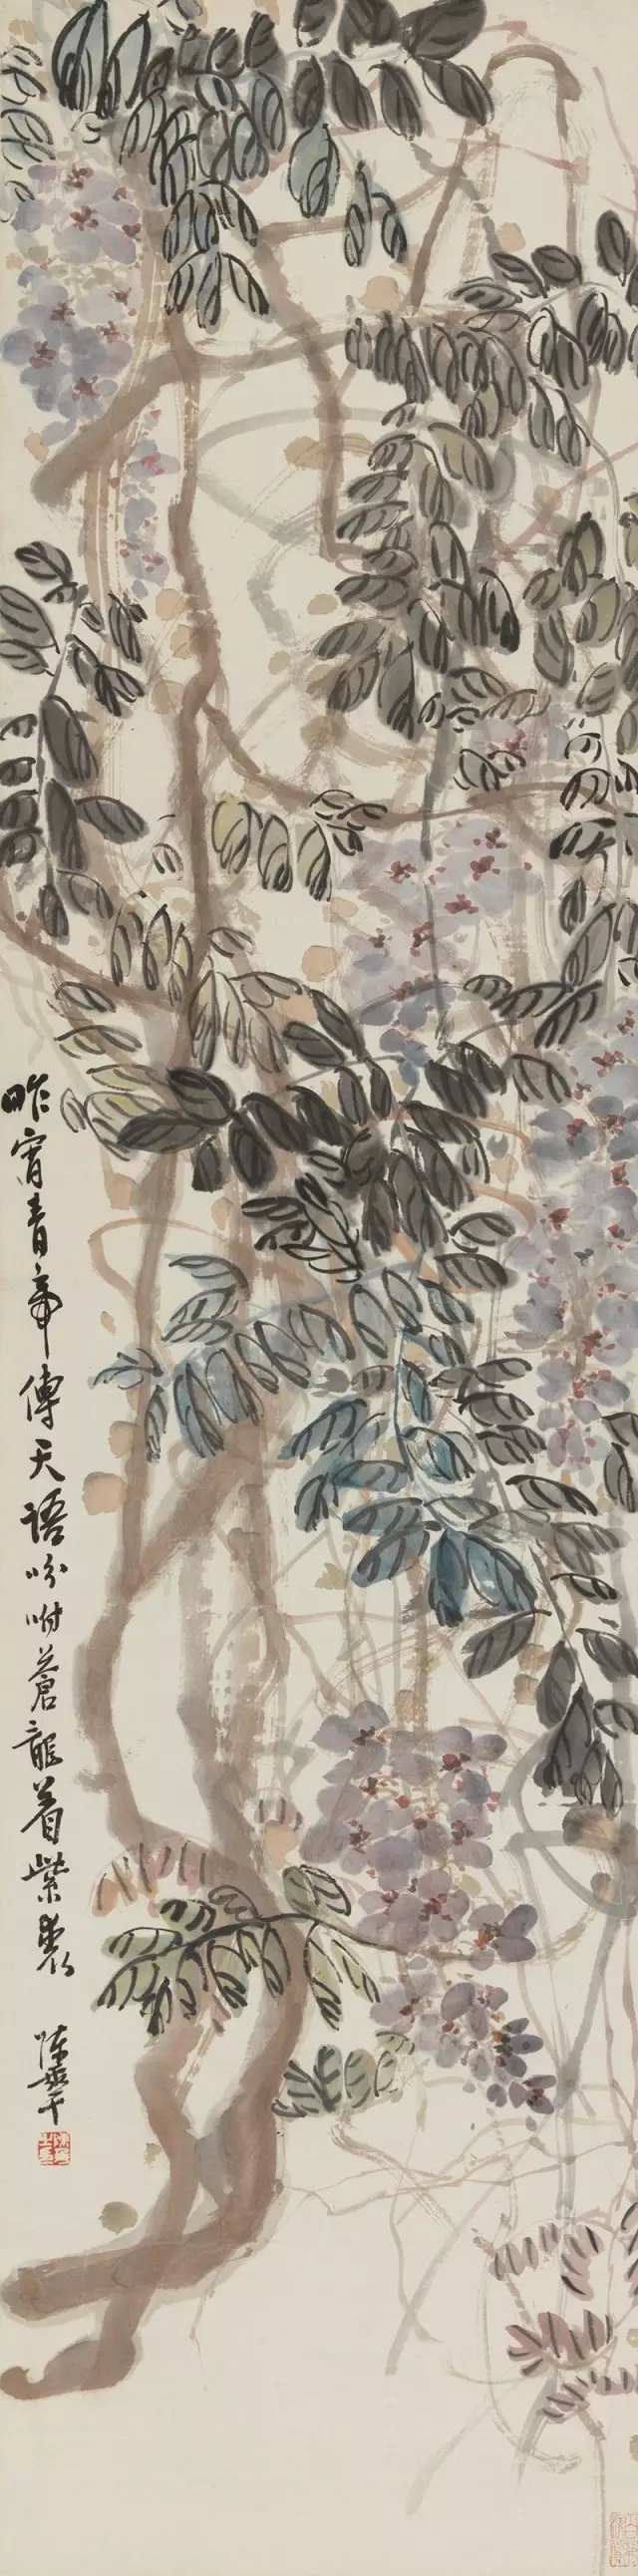 昨宵青帝傳天語吩咐蒼龍着紫裘
陳半丁